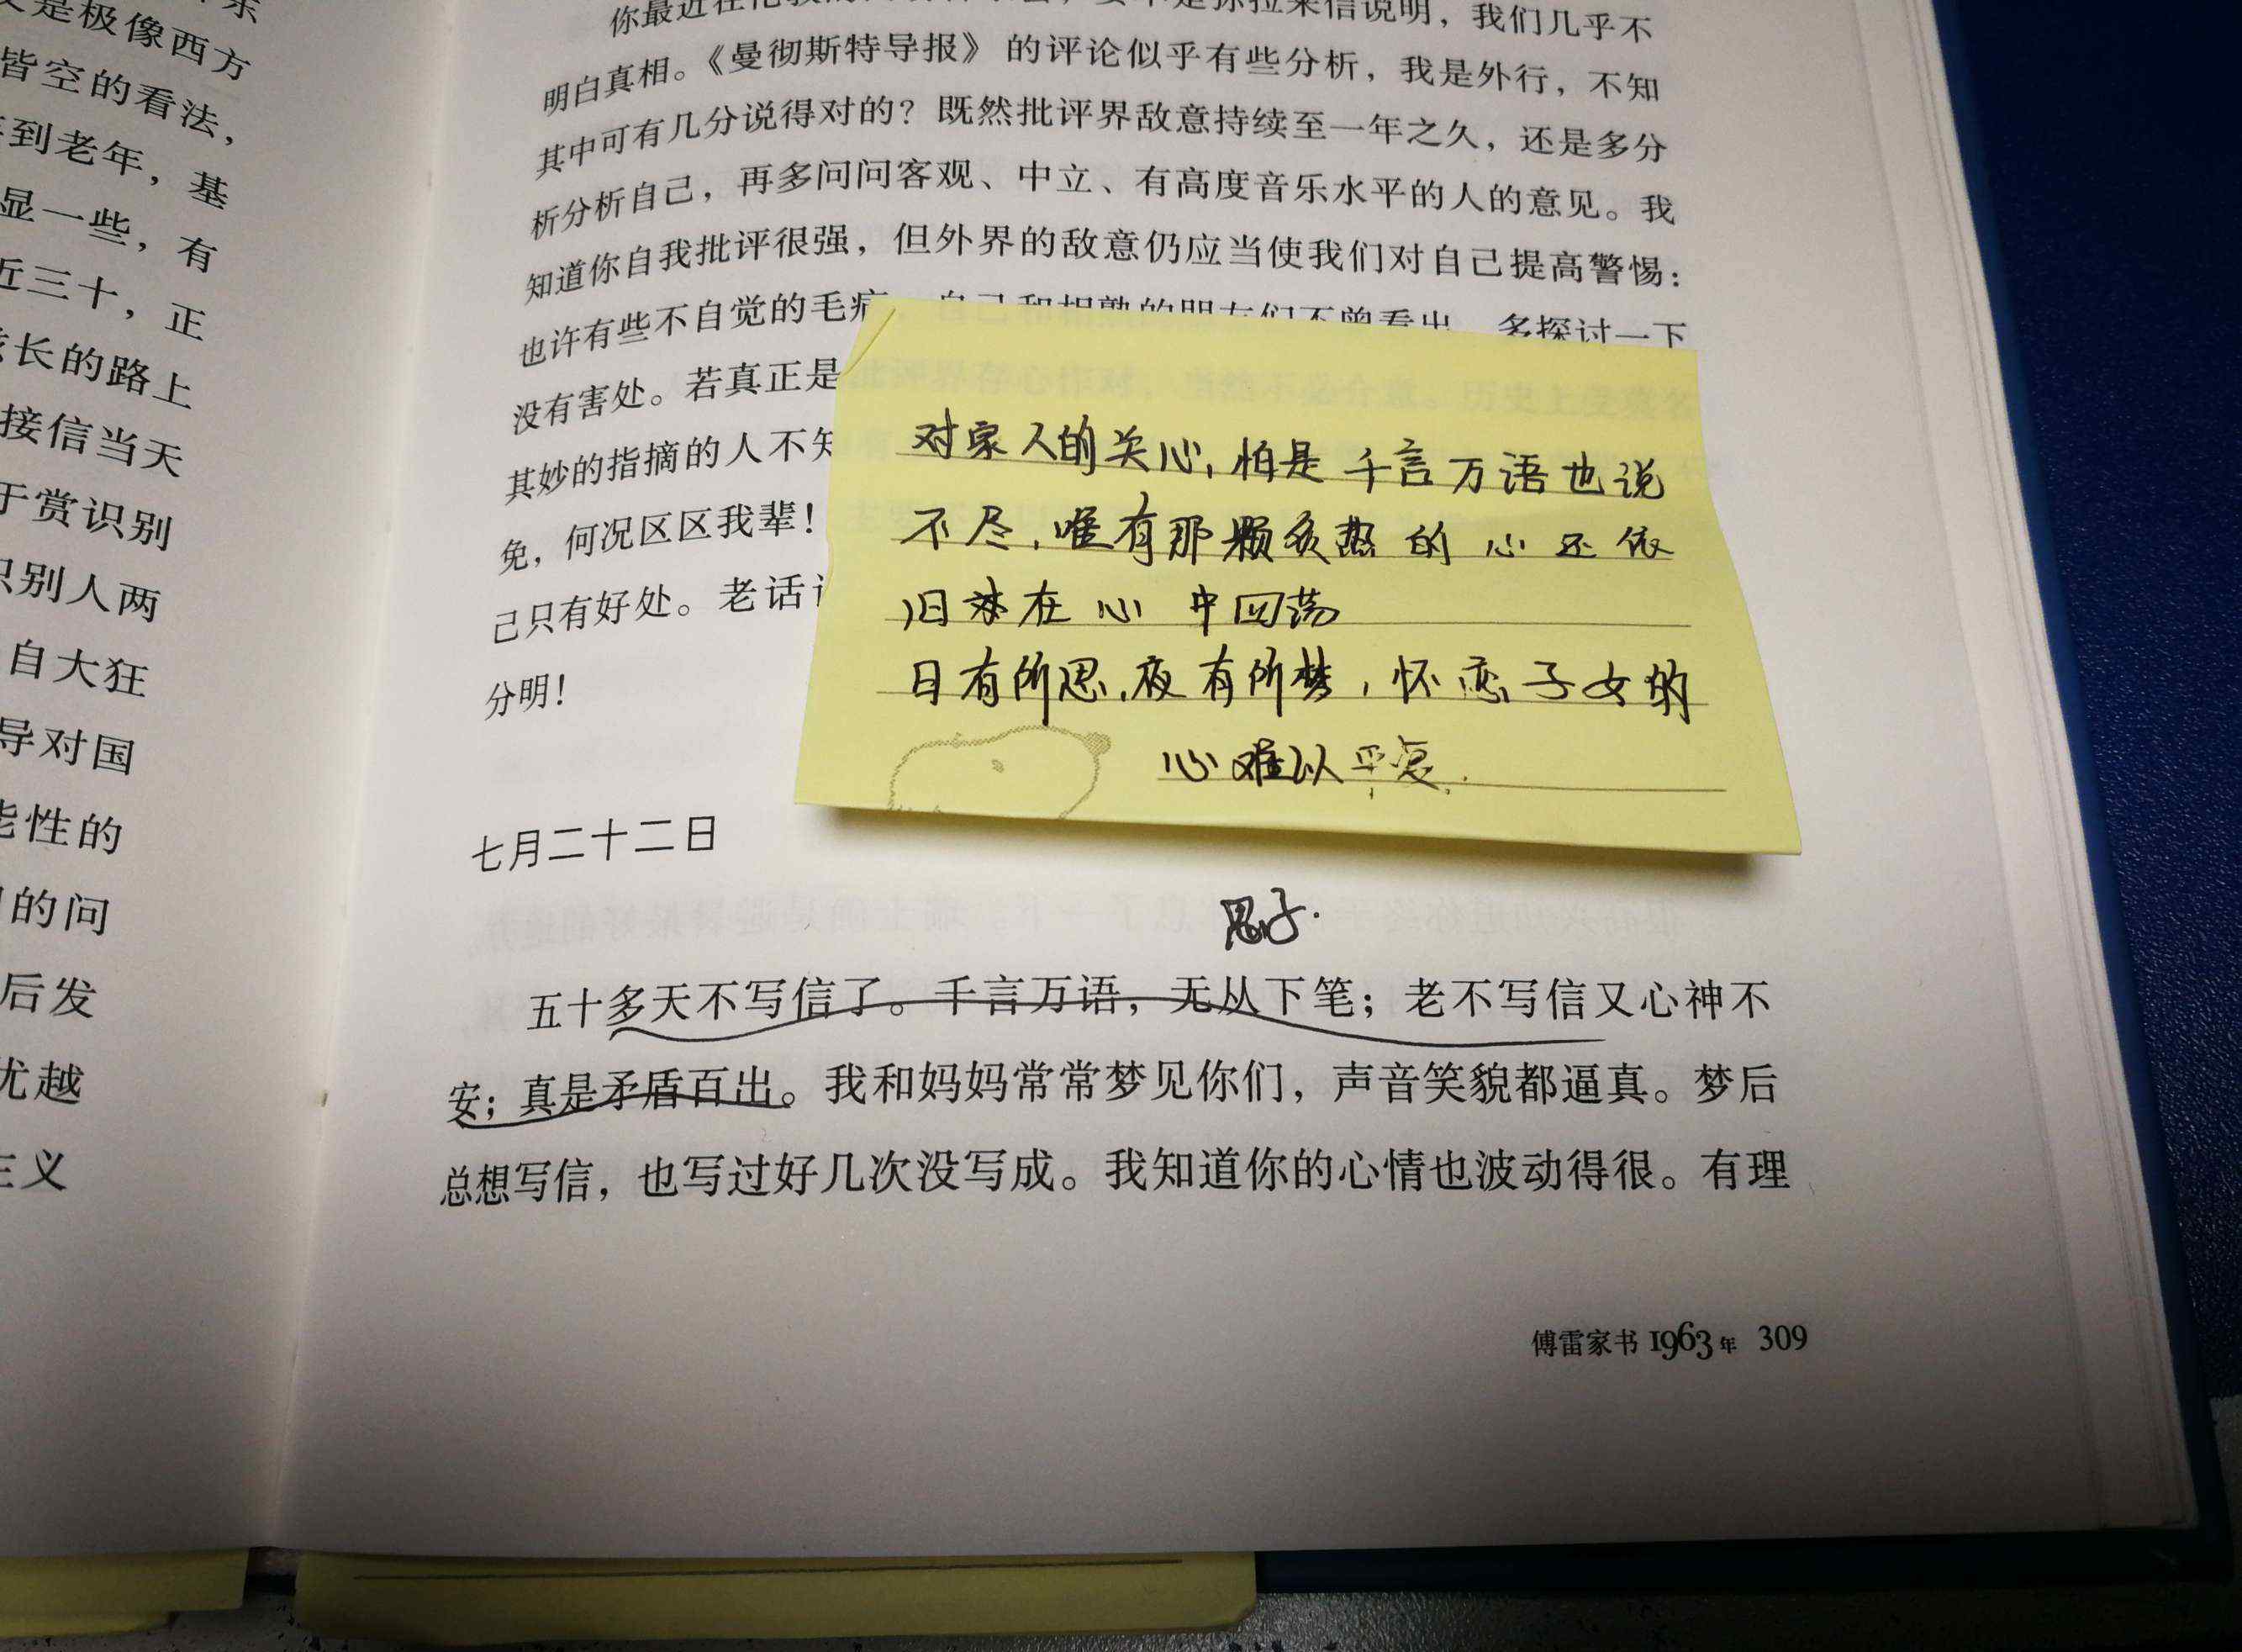 乐
是极像西方
皆空的看法，
到老年，基
显一些，有
近三十，正
长的路上
接信当天
于赏识别
识别人两
自大狂
导对国
能性的
的问
后发
优越
主义
信说明，我们几乎不
明白真相。《曼彻斯特导报》的评论似乎有些分析，我是外行，不知
其中可有几分说得对的？既然批评界敌意持续至一年之久，还是多分
析分析自己，再多问问客观、中立、有高度音乐水平的人的意见。我
知道你自我批评很强，但外界的敌意仍应当使我们对自己提高警惕：
也许有些不自觉的毛病，自己和相熟的朋友们不曾看出。多探讨一下
没有害处。若真正是
其妙的指摘的人不知
免，何况区区我辈！
己只有好处。老话
分明！
对家人的关心，怕是千言万语也说
不尽，唯有那颗炙热的心还依
旧在心中回荡
日有所思，夜有所梦，怀恋子女的
心难以平复.
七月二十二日
思子.
五十多天不写信了。千言万语，无从下笔；老不写信又心神不
安；真是矛盾百出。我和妈妈常常梦见你们，声音笑貌都逼真。梦后
总想写信，也写过好几次没写成。我知道你的心情也波动得很。有理
傅雷家书 1963年 309